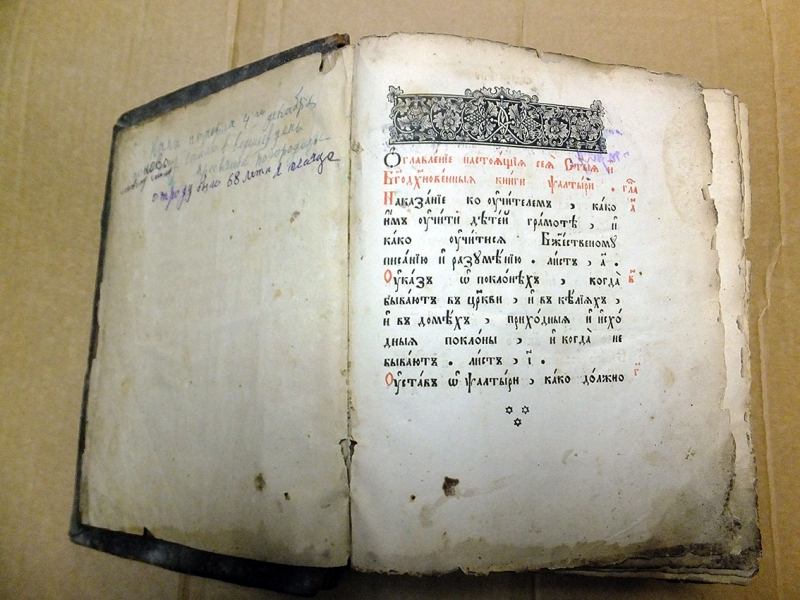 4 го декабря
от роду было 68 лет
Ѻглавле́нїе настоѧ́щїѧ сеѧ̀ Ст҃ы́ѧ и҆
Бг҃одꙋхнове́нныѧ кни́ги ѱалты́ри . гла
Наказа́нїе ко ᲂу҆чи́телємъ , ка́кѡ
и҆̀мъ ᲂу҆чи́ти дѣте́й гра́мотѣ , и҆ а҃
ка́кѡ ᲂу҆чи́тисѧ Бж҃е́ственомꙋ
писа́нїю и҆ разꙋмѣ́нїю . ли́стъ , а҃ .
Оу҆ка́зъ ѡ҆ покло́нѣхъ , когда̀ в҃
быва́ютъ въ цр҃кви , и҆ въ ке́лїѧхъ ,
и҆ въ домѣ́хъ , прихо́дныѧ и҆ и҆схо́
дныѧ покло́ны , и҆ когда̀ не
быва́ютъ . ли́стъ , і҃ .
Оу҆ста́въ ѡ҆ ѱалты́ри , ка́кѡ до́лжно г҃